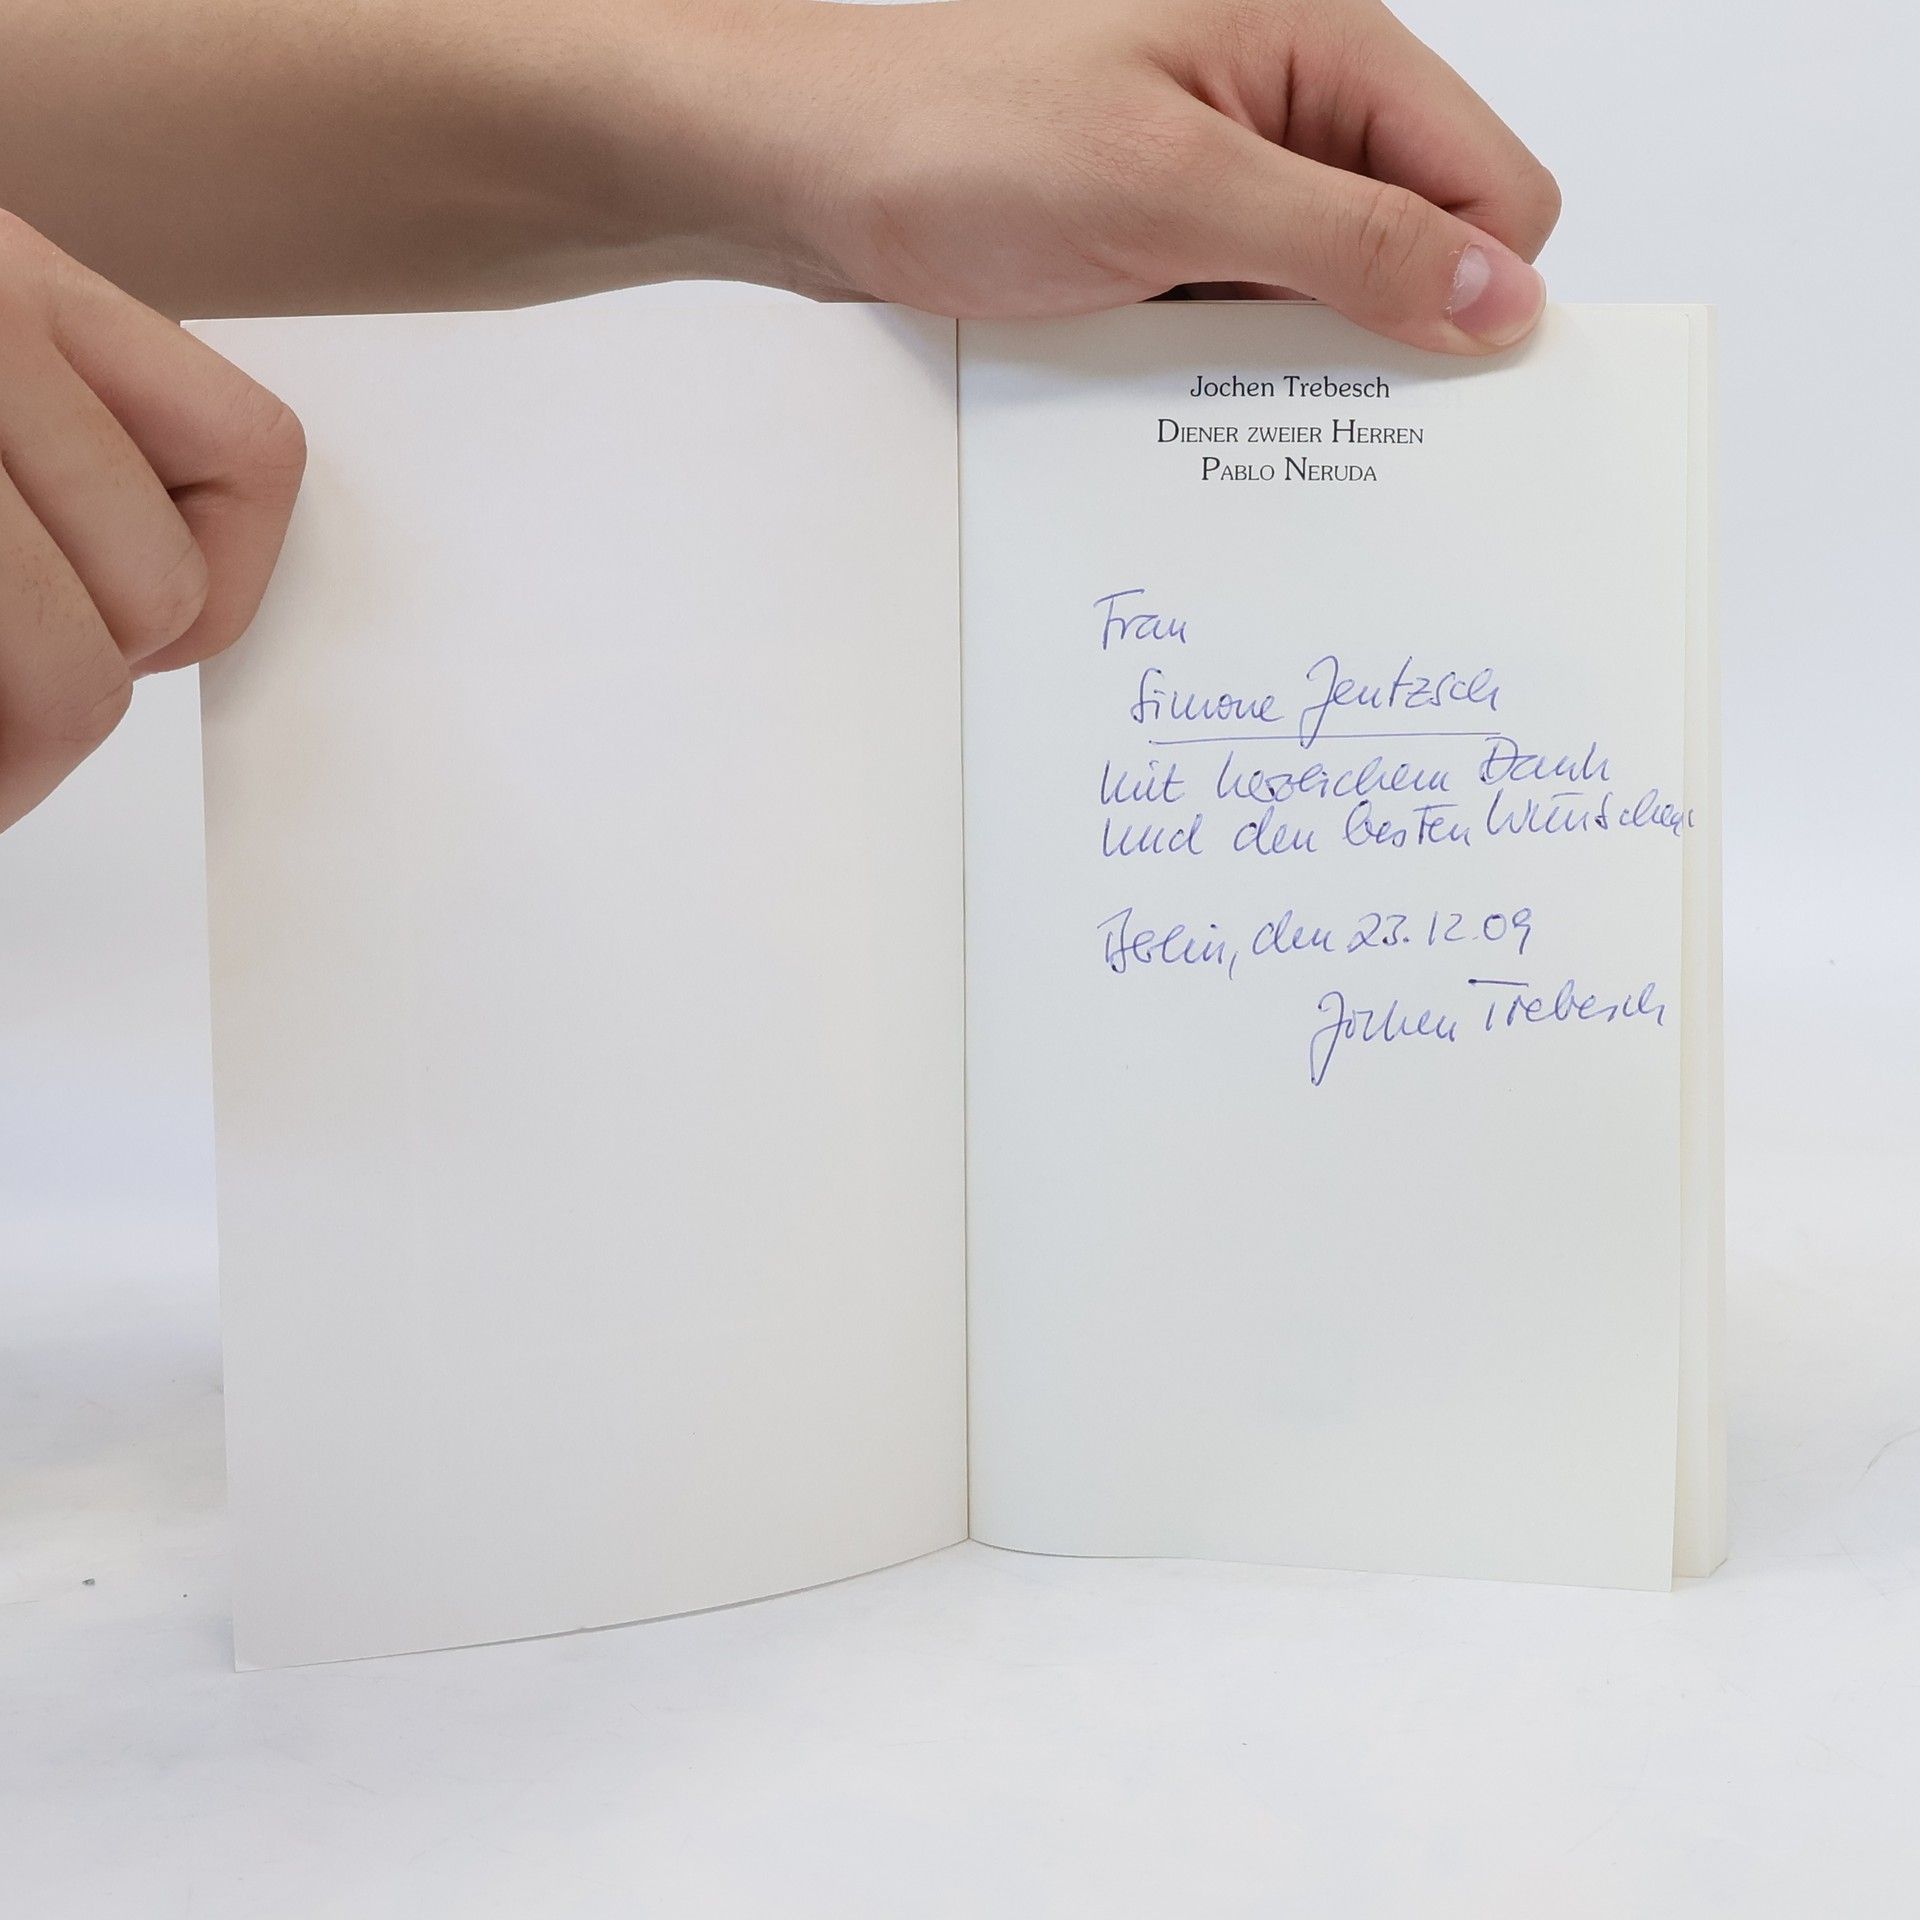 Jochen Trebesch
DIENER ZWEIER HERREN
PABLO NERUDA
Frau
Simone Jentzsch
mit herzlichem Dank
und den besten Wünschen
Berlin, den 23.12.09
Jochen Trebesch